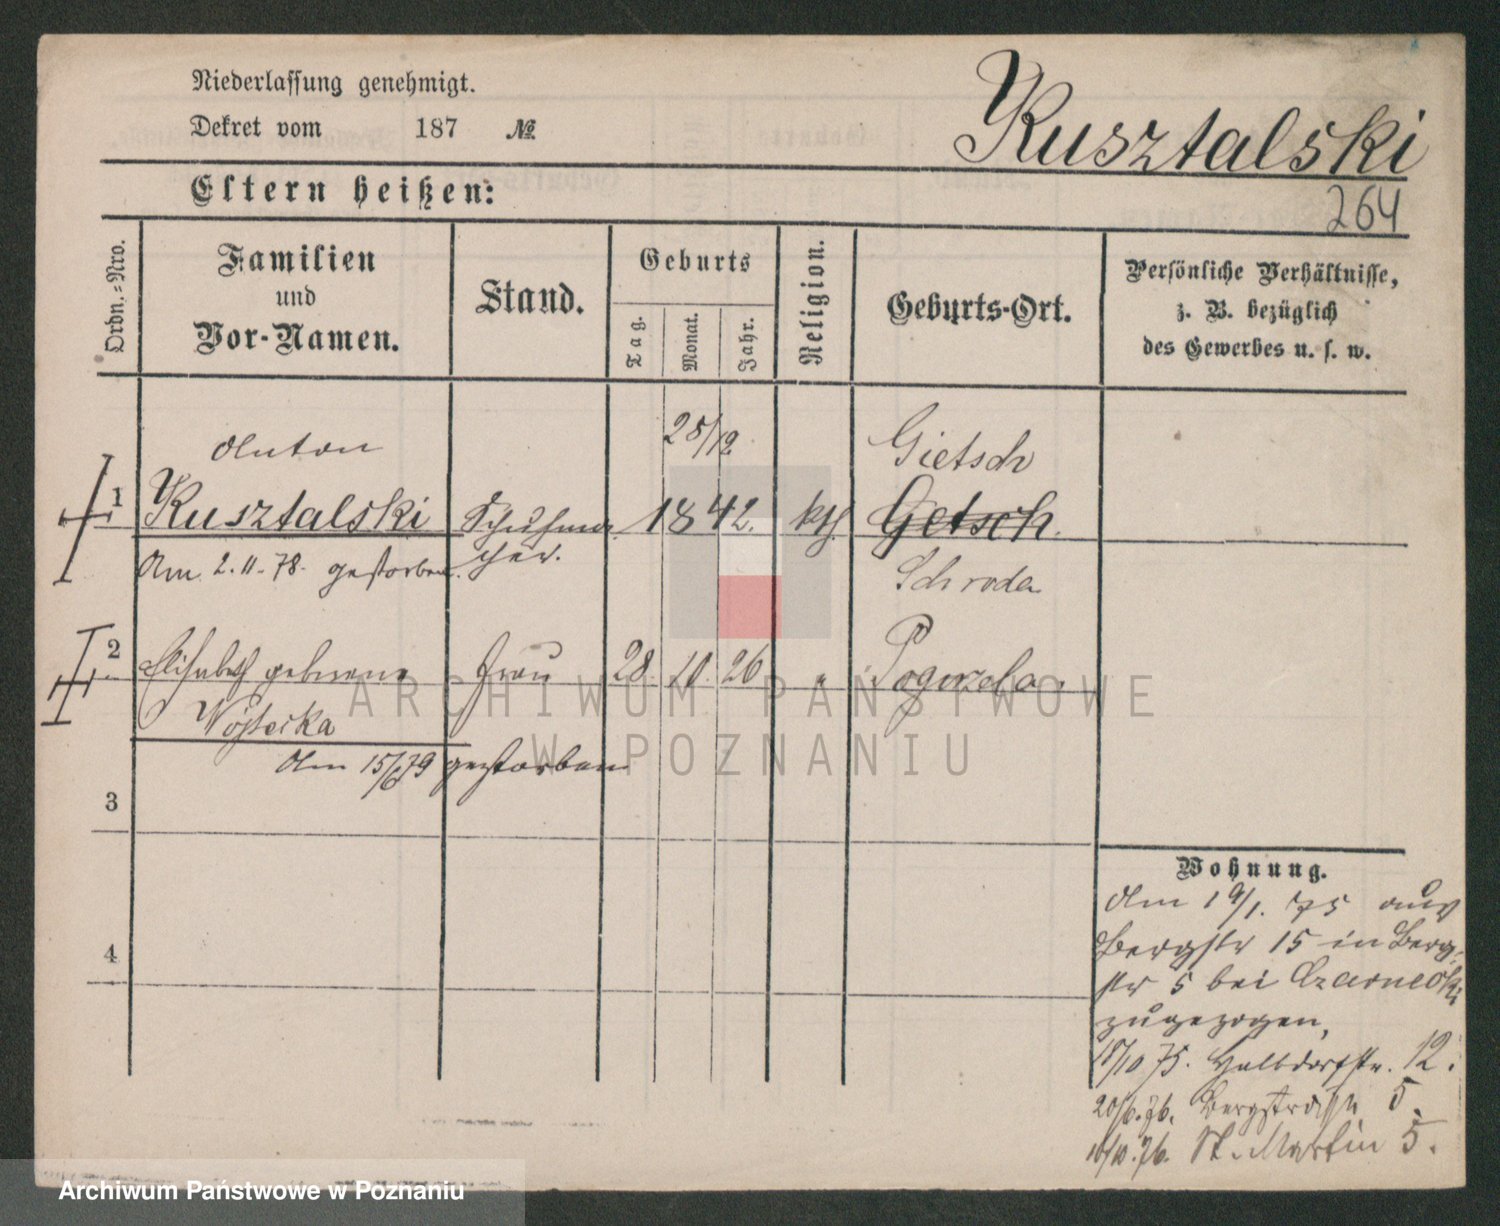 Niederlassung genehmigt.
Dekret vom 187 №
Kusztalski
Eltern heißen:
264
Ordn.-Nro.
Familien
und
Vor-Namen.
Stand.
Geburts
Tag.
Monat.
Jahr.
Religion.
Geburts-Ort.
Persönliche Verhältnisse,
z. B. bezüglich
des Gewerbes u. s. w.
Anton 25/12 Gietsch
1 Kusztalski Schuhma 1842. kth. Getsch.
Am 2.11.78. gestorben. cher. Schroda
2 Elisabeth geborene Frau 28. 10. 26 " Pogorzela.
Wojtecka
Am 15/6 79 gestorben
3
4
Wohnung.
Am 19/1. 75 aus
Bergstr 15 in Berg-
str 5 bei Czarnecki
zugezogen,
18/10 75. Halbdorfstr. 12.
20/6. 76. Bergstraße 5.
10/10. 76. St. Martin 5.
ARCHIWUM PAŃSTWOWE
W POZNANIU
Archiwum Państwowe w Poznaniu